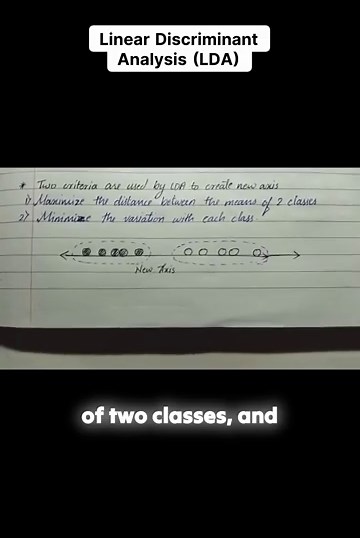 Linear Discriminant
Analysis (LDA)
* Two criteria are used by LDA to create new axis
1) Maximize the distance between the means of 2 classes
2) Minimize the variation with each class.
New Axis
of two classes, and